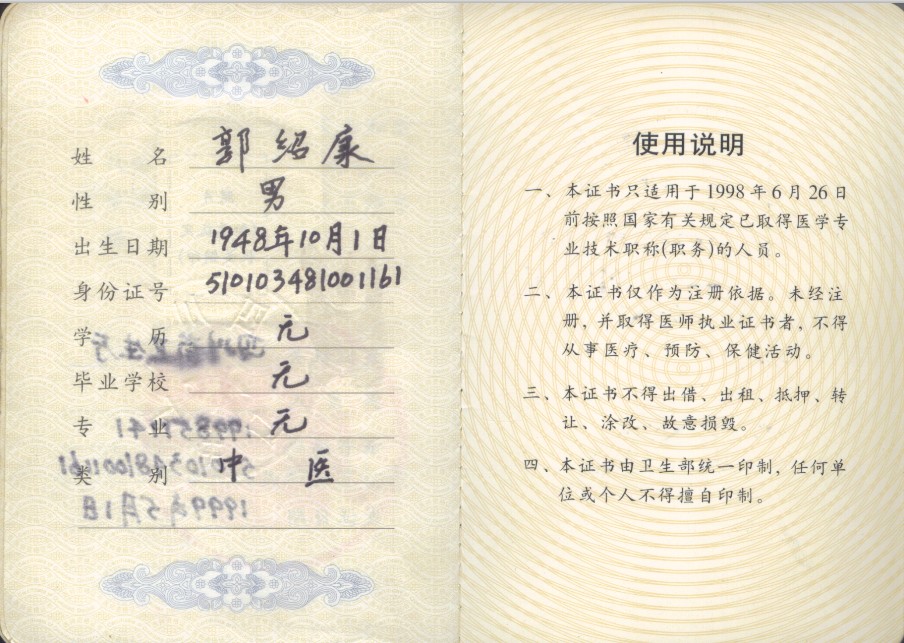 姓名 郭绍康
性别 男
出生日期 1948年10月1日
身份证号 510103481001161
学历 元
毕业学校 元
专业 元
类别 中医
使用说明
一、本证书只适用于1998年6月26日
前按照国家有关规定已取得医学专
业技术职称(职务)的人员。
二、本证书仅作为注册依据。未经注
册,并取得医师执业证书者,不得
从事医疗、预防、保健活动。
三、本证书不得出借、出租、抵押、转
让、涂改、故意损毁。
四、本证书由卫生部统一印制,任何单
位或个人不得擅自印制。